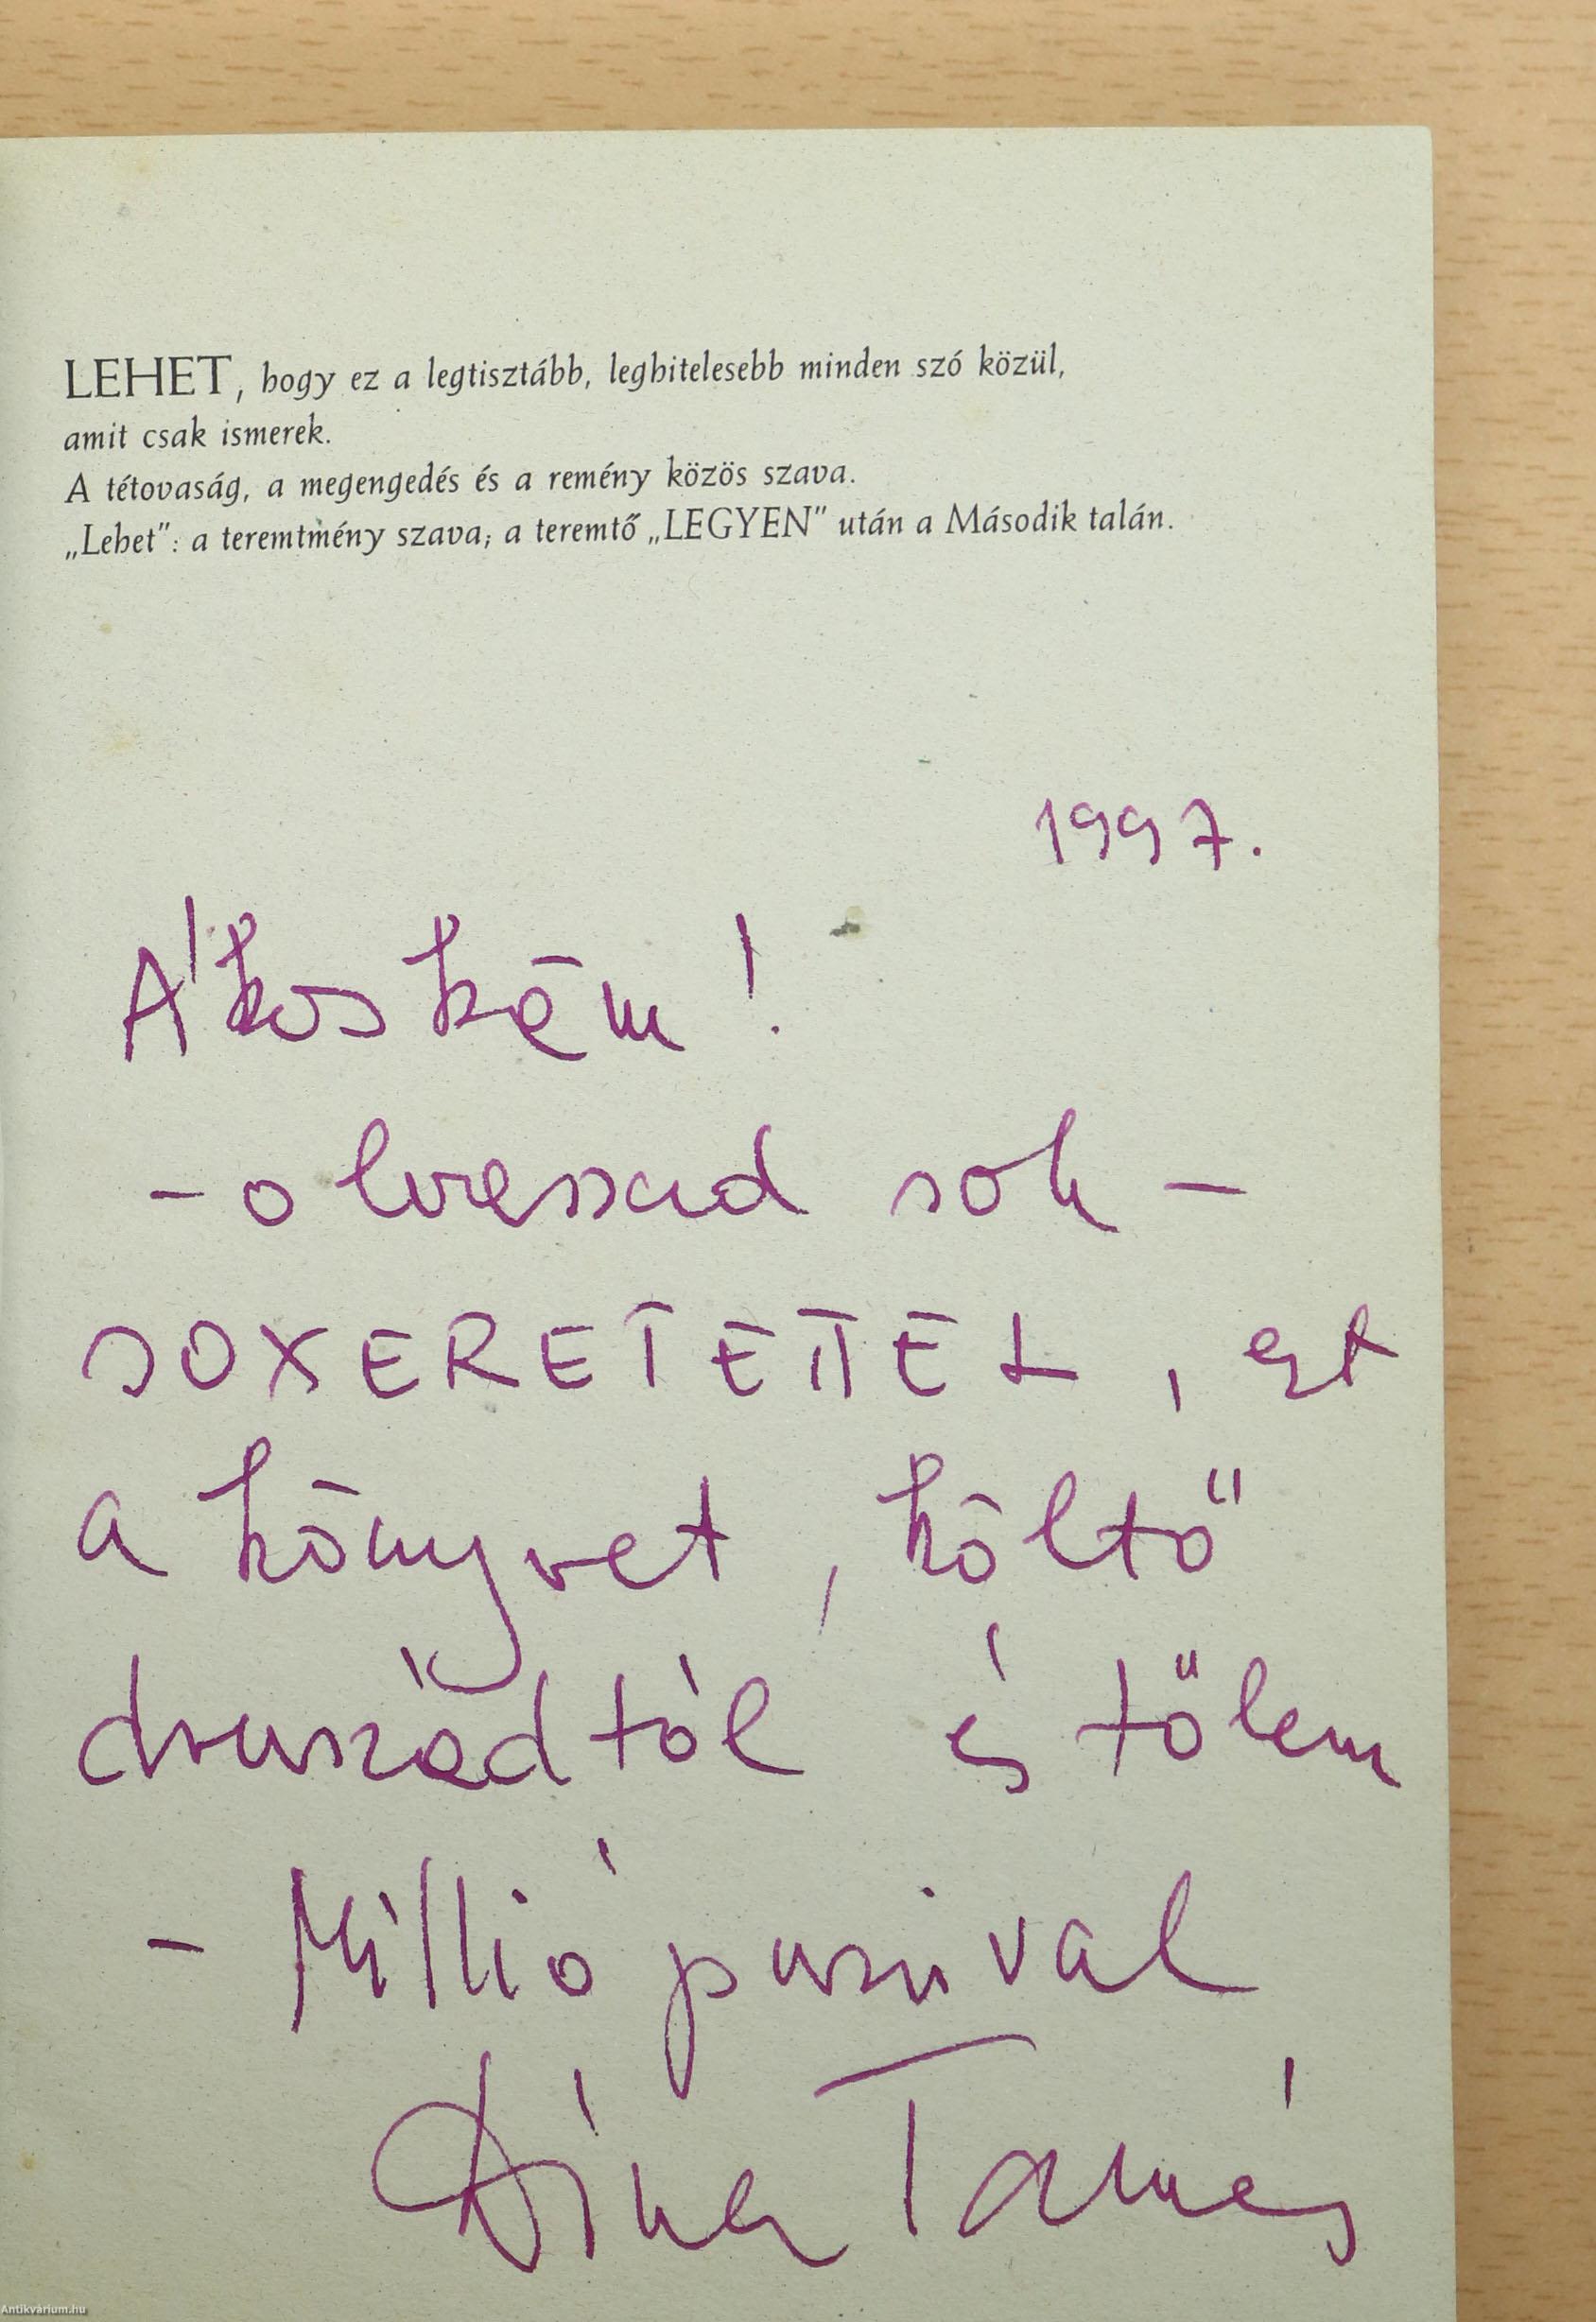 LEHET, hogy ez a legtisztább, leghitelesebb minden szó közül,
amit csak ismerek.
A tétovaság, a megengedés és a remény közös szava.
„Lehet": a teremtmény szava; a teremtő „LEGYEN" után a Második talán.
1997.
Ákoskám!
- olvassad sok -
SOXERETETTEL, ezt
a könyvet, költő
druszádtól és tőlem
- Millió puszival
Dina Tamás
Antikvárium.hu